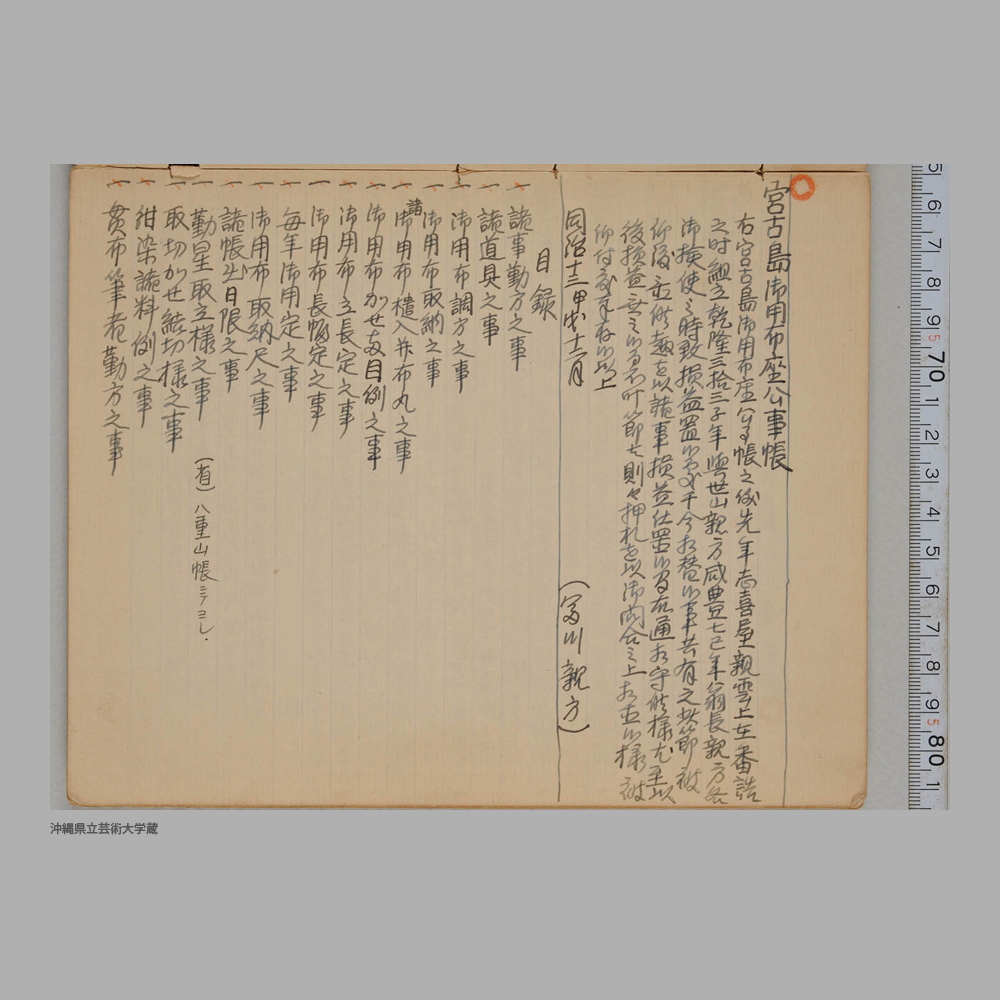 宮古島御用布座公事帳
右宮古島御用布座公事帳之儀先年志喜屋親雲上在番詰
之時組立乾隆三拾三子年與世山親方咸豊七巳年翁長親方為
御検使之時致損益置候處于今相替候事共有之此節被
仰渡置候趣を以諸事損益仕置候間右通相守候様尤至以
後損益
仰付候事存候以上
同治十三年甲戌十二月
(富川親方)
目録
一諸事勤方之事
一諸道具之事
一御用布調方之事
一御用布取納之事
一諸御用布樻入并布丸之事
一御用布かせ支目例之事
一御用布立長定之事
一御用布長幅定之事
一毎年御用定之事
一御用布取納尺之事
一諸帳出日限之事
一勤星取立様之事
一取切かせ結切様之事
一紺染諸料例之事
一貫布筆者勤方之事
(有)八重山帳ニテヨシ.
5 6 7 8 9 5 70 1 2 3 4 5 6 7 8 9 5 80 1
沖縄県立芸術大学蔵